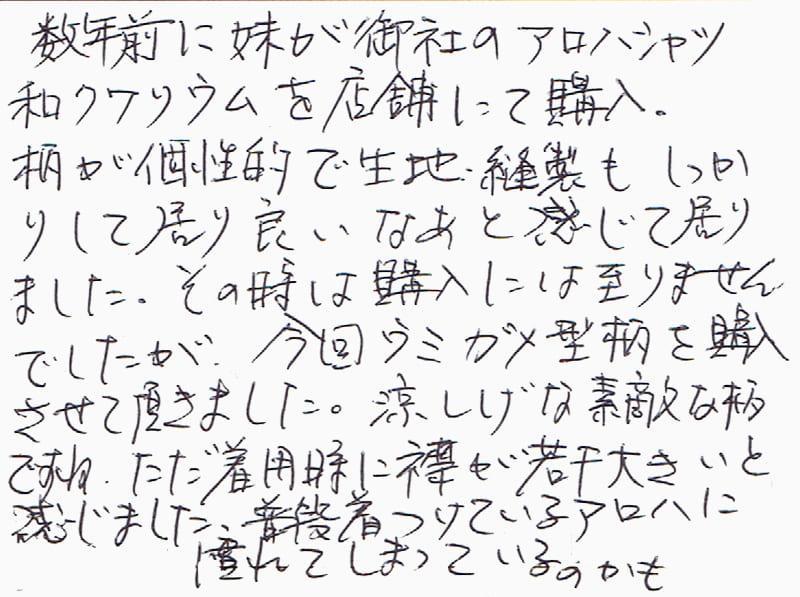 数年前に妹が御社のアロハシャツ
和クワリウムを店舗にて購入。
柄が個性的で生地.縫製もしっか
りして居り良いなあと感じて居り
ました。その時は購入には至りません
でしたが、今回ウミガメ型柄を購入
させて頂きました。涼しげな素敵な柄
ですね。ただ着用時に襟が若干大きいと
感じました、普段着つけているアロハに
慣れてしまっているのかも